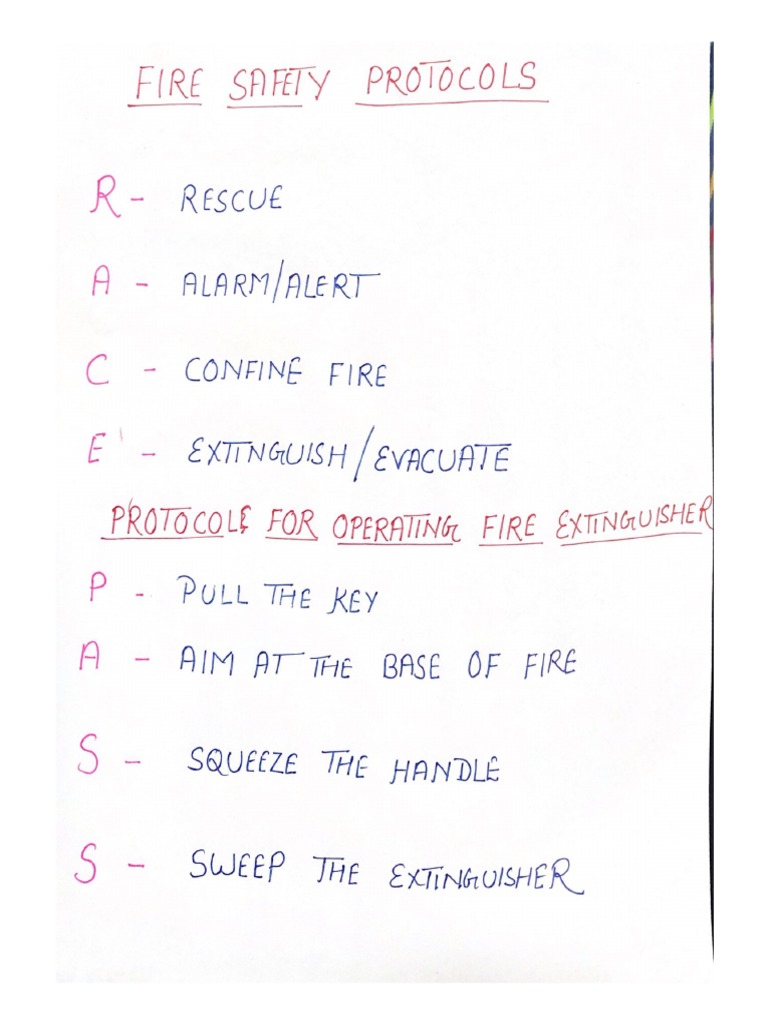 FIRE SAFETY PROTOCOLS
R - RESCUE
A - ALARM/ALERT
C - CONFINE FIRE
E - EXTINGUISH/EVACUATE
PROTOCOLS FOR OPERATING FIRE EXTINGUISHER
P - PULL THE KEY
A - AIM AT THE BASE OF FIRE
S - SQUEEZE THE HANDLE
S - SWEEP THE EXTINGUISHER